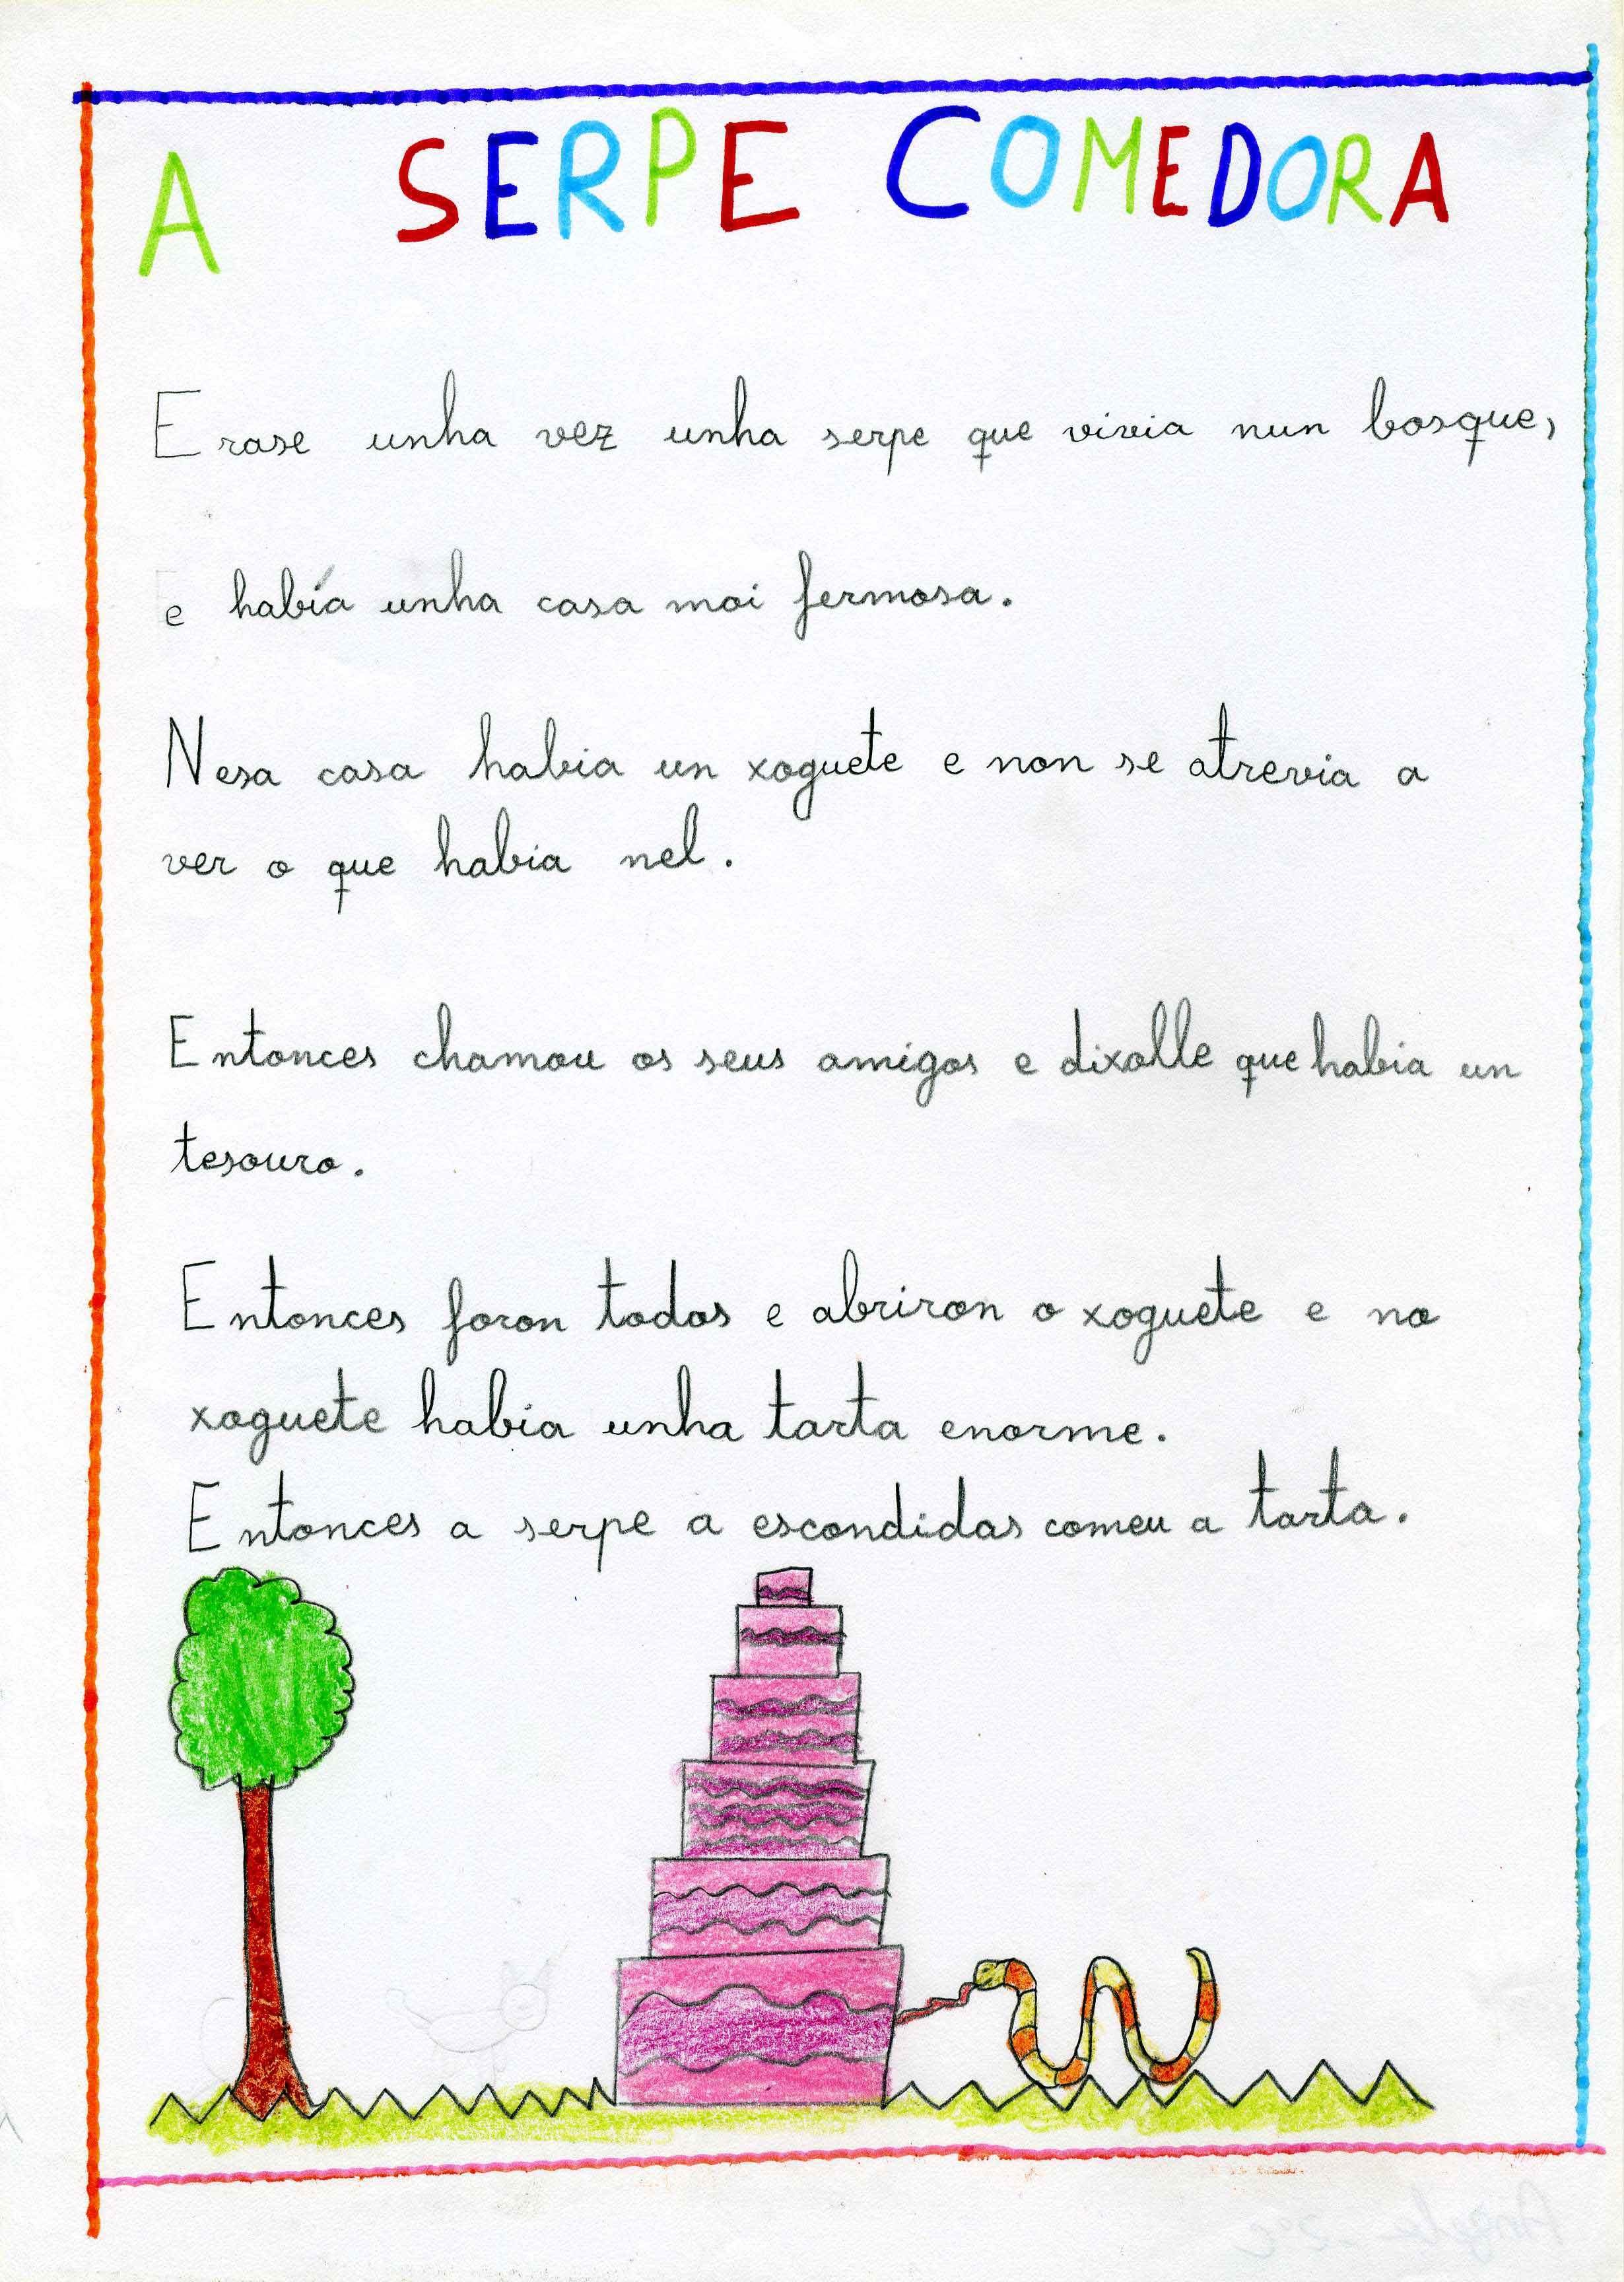 A SERPE COMEDORA
Erase unha vez unha serpe que vivia nun bosque,
e había unha casa moi fermosa.
Nesa casa habia un xoguete e non se atrevia a
ver o que habia nel.
Entonces chamou os seus amigos e dixolle que habia un
tesouro.
Entonces foron todos e abriron o xoguete e no
xoguete habia unha tarta enorme.
Entonces a serpe a escondidas comeu a tarta.